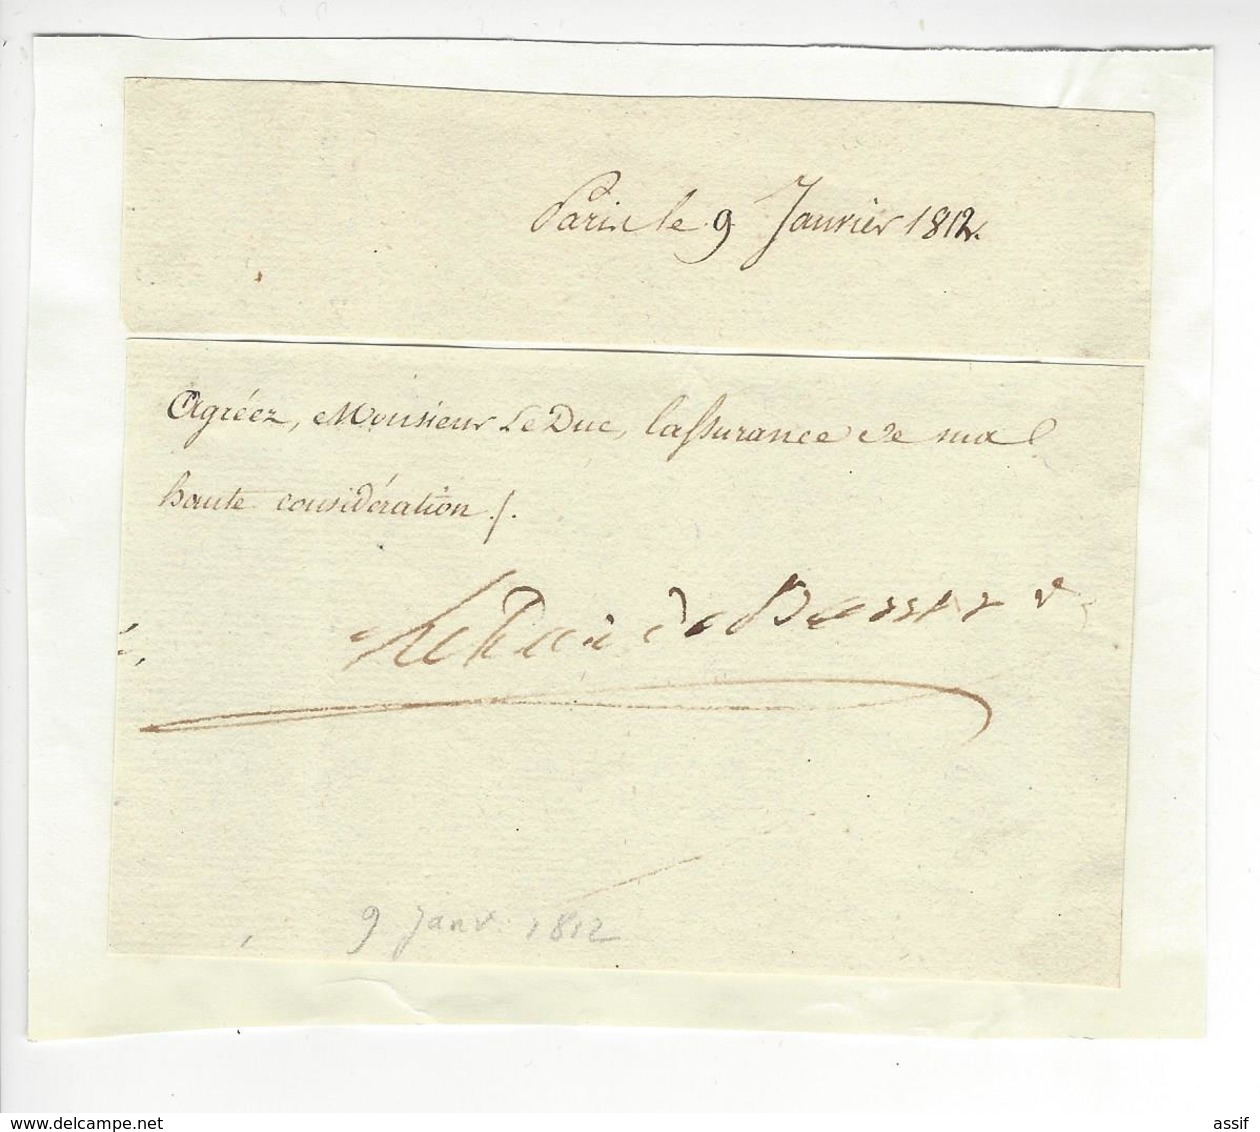 Paris le 9 Janvier 1812.
Agréez, Monsieur Le Duc, lassurance de ma
haute considération /.
de
9 Janv. 1812
www.delcampe.net
assif